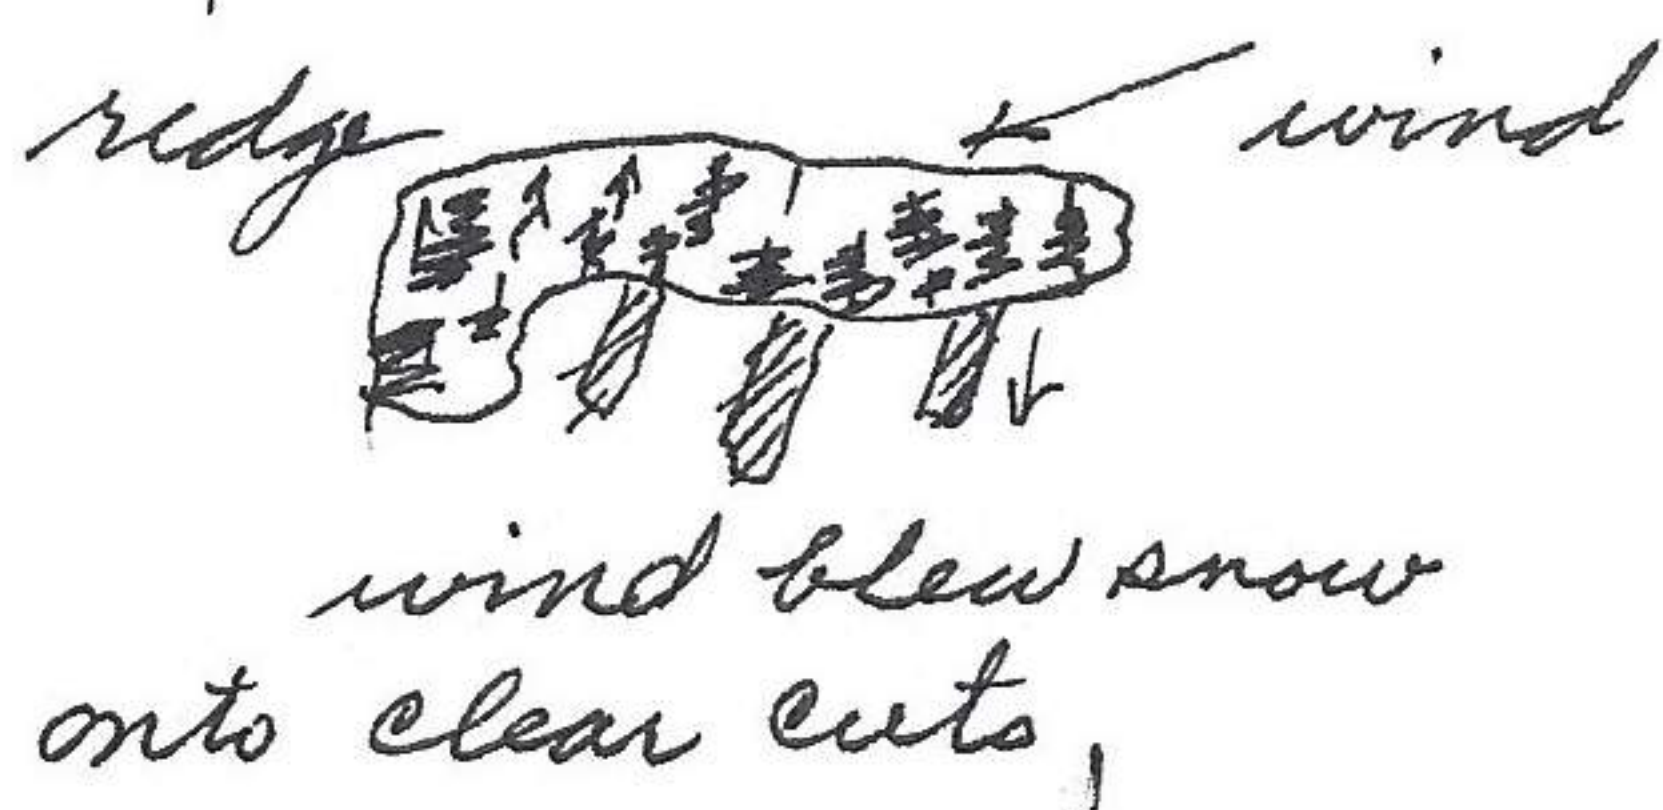 ridge wind
wind blew snow
onto clear cuts,